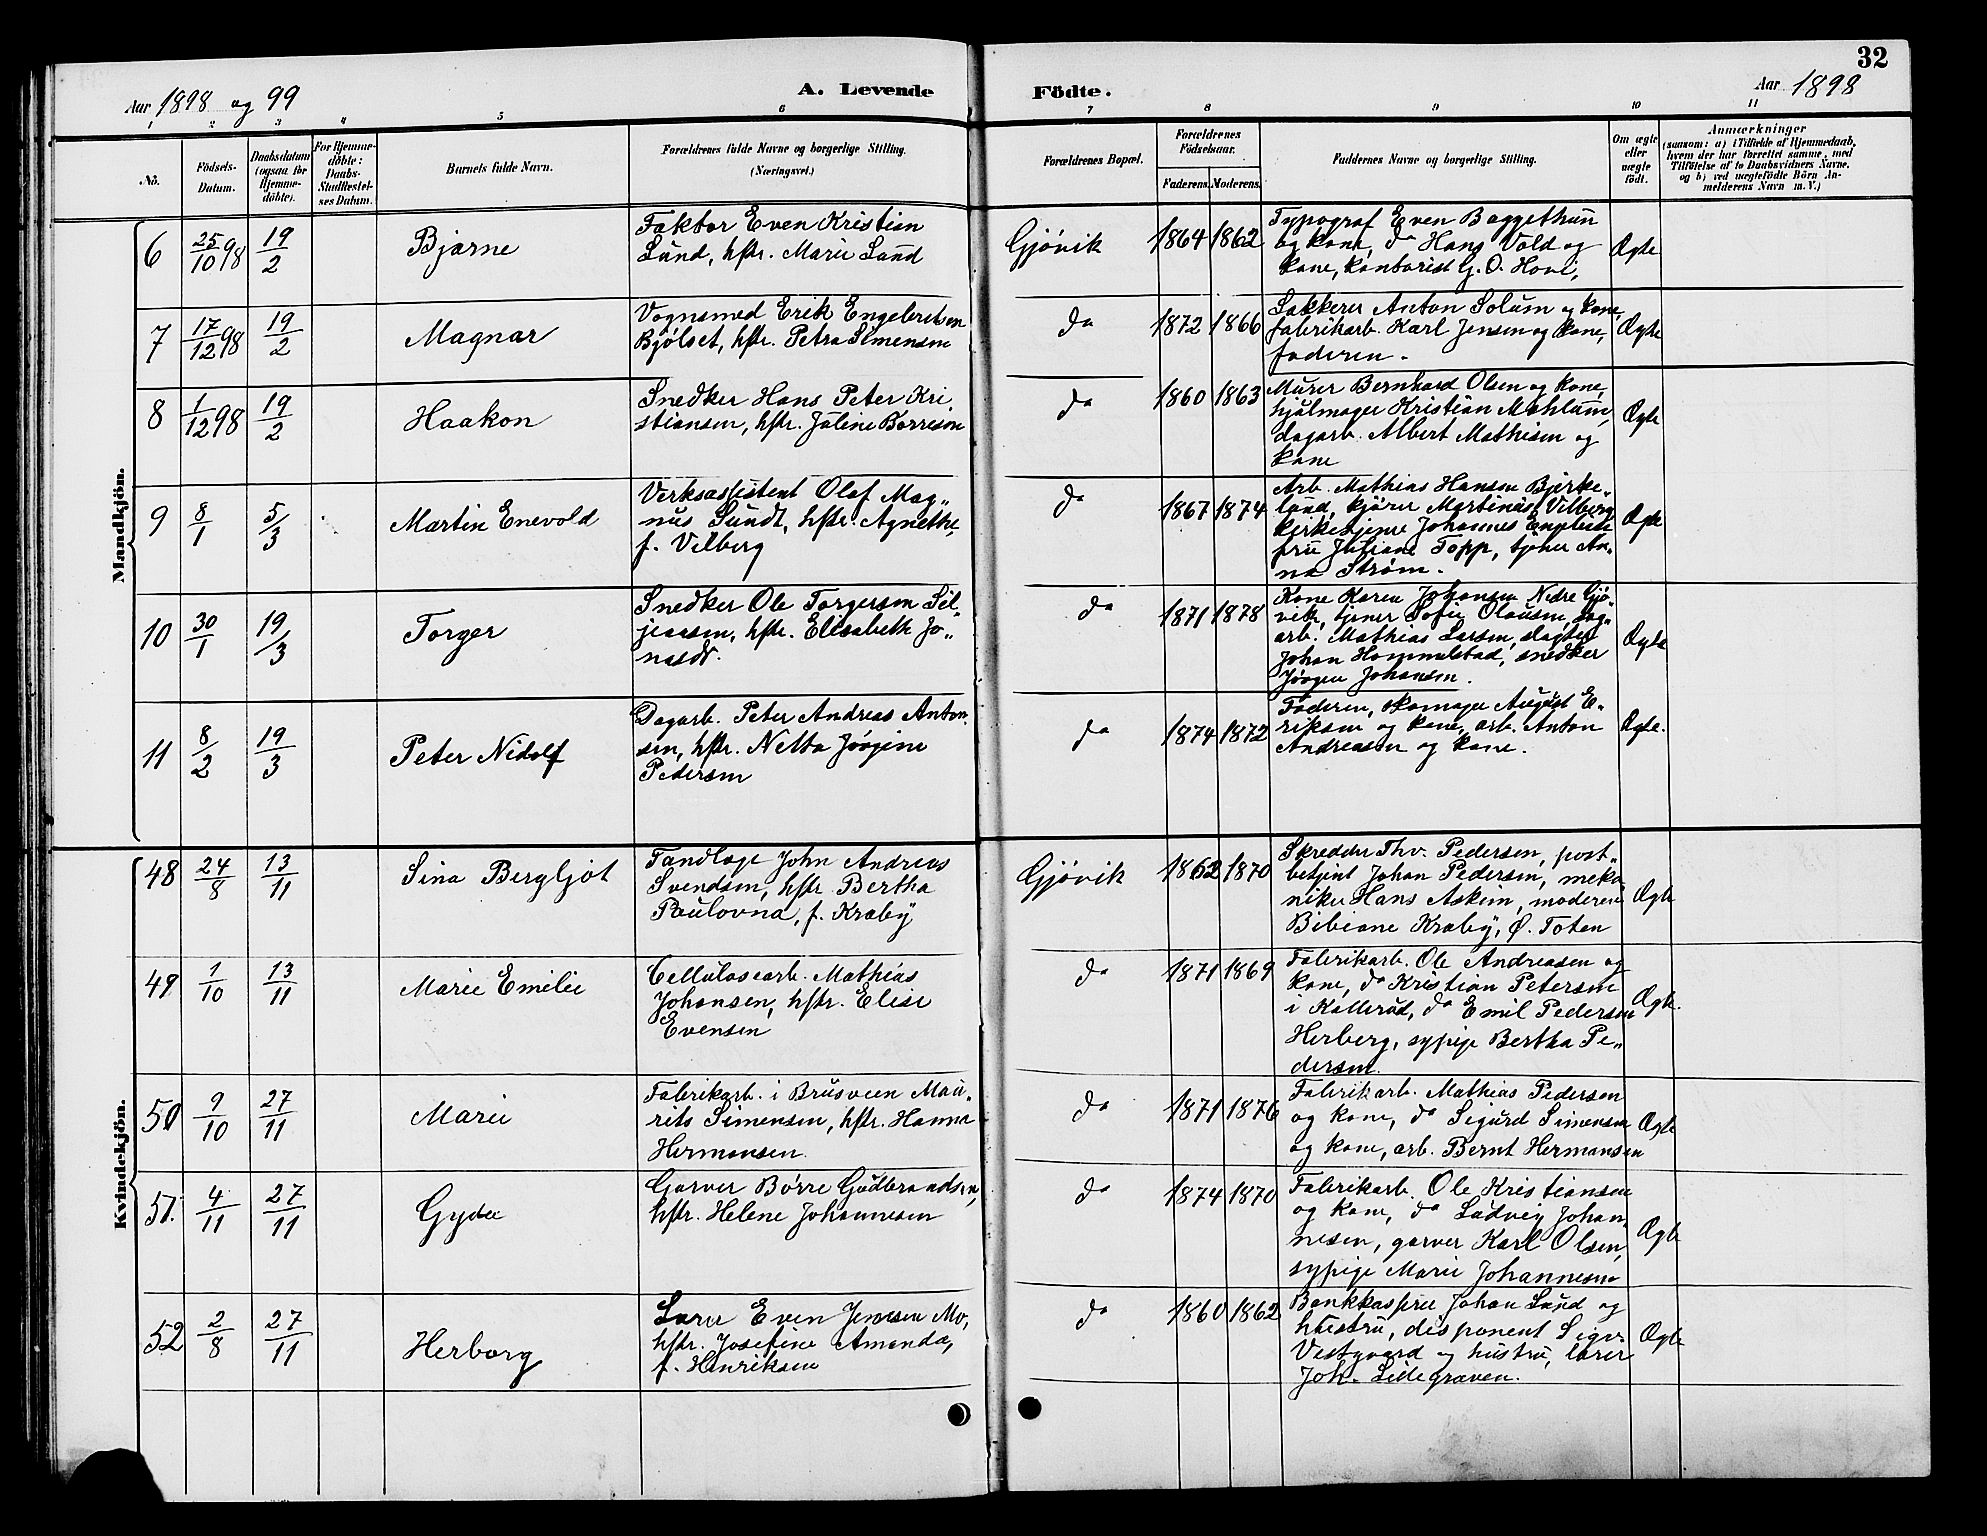 32
Aar 1898 og 99
A. Levende Födte.
Aar 1898
1 2 3 4 5 6 7 8 9 10 11
No.
Födsels-
Datum.
Daabsdatum
(ogsaa for
Hjemme-
döbte).
For Hjemme-
döbte:
Daabs-
Stadfæstel-
ses Datum.
Barnets fulde Navn.
Forældrenes fulde Navne og borgerlige Stilling.
(Næringsvei.)
Forældrenes Bopæl.
Forældrenes
Födselsaar.
Faderens. Moderens.
Faddernes Navne og borgerlige Stilling.
Om ægte
eller
uægte
födt.
Anmærkninger
(saasom: a) i Tilfælde af Hjemmedaab,
hvem der har forrettet samme, med
Tilföielse af to Daabsvidners Navne.
og b) ved uægtefödte Börn An-
melderens Navn m. V.)
Mandkjön.
6 25/10 98 19/2 Bjarne
Faktor Even Kristian
Lund, hstr. Marie Lund
Gjøvik 1864 1862
Typograf Even Baggethun
og kone, do Hans Vold og
kone, kontorist G. O. Hovi,
Ægte
7 17/12 98 19/2 Magnar
Vognsmed Erik Engebretsen
Bjølset, hstr. Petra Simensen
do 1872 1866
Lakkerer Anton Solum og kone,
fabrikarb. Karl Jensen og kone,
faderen.
Ægte
8 1/12 98 19/2 Haakon
Snedker Hans Peter Kri-
stiansen, hstr. Juline Børresen
do 1860 1863
Murer Bernhard Olsen og kone,
hjulmager Kristian Mæhlum,
dagarb. Albert Mathisen og
kone
Ægte
9 8/1 5/3 Martin Enevold
Verksassistent Olaf Mag-
nus Sundt, hstr. Agnethe,
f. Vilberg
do 1867 1874
Arb. Mathias Hansen Bjerke-
lund, kjører Martinus Vilberg
kirketjener Johannes
fru Juliane Topp, tjener An-
na Strøm.
Ægte
10 30/1 19/3 Torger
Snedker Ole Torgersen Sil-
jeaasen, hstr. Elisabeth Jo-
nasdr.
do 1871 1878
Kone Karen Johansen Nedre Gjø-
vik, tjener Sofie Olausen, dag-
arb. Mathias Larsen, slagter
Johan Hommelstad, snedker
Jørgen Johansen.
Ægte
11 8/2 19/3 Peter Nidolf
Dagarb. Peter Andreas Anton-
sen, hstr. Netta Jørgine
Pedersen
do 1874 1872
Faderen, skomager August E-
riksen og kone, arb. Anton
Andreasen og kone.
Ægte.
Kvindekjön.
48 24/8 13/11 Sina Bergljot
Tandlæge John Andreas
Svendsen, hstr. Bertha
Paulovna, f. Kraby
Gjøvik 1862 1870
Skredder Thv. Pedersen, post-
betjent Johan Pedersen, meka-
niker Hans Askim, moderen
Bibiane Kraby, Ø. Toten
Ægte
49 1/10 13/11 Marie Emilie
Cellulosearb. Mathias
Johansen, hstr. Elise
Evensen
do 1871 1869
Fabrikarb. Ole Andreasen og
kone, do Kristian Petersen
i Kallerud, do Emil Pedersen
Herberg, sypige Bertha Pe-
dersen.
Ægte.
50 9/10 27/11 Marie
Fabrikarb. i Brusveen Mau-
rits Simensen, hstr. Hanna
Hermansen.
do 1871 1876
Fabrikarb. Mathias Pedersen
og kone, do Sigurd Simensen
og kone, arb. Bernt Hermansen
Ægte
51. 4/11 27/11 Gyda
Garver Børre Gudbrandsen,
hstr. Helene Johannesen
do 1874 1870
Fabrikarb. Ole Kristiansen
og kone, do Ludvig Johan-
nesen, garver Karl Olsen,
sypige Marie Johannesen
Ægte
52 2/8 27/11 Herborg
Lærer Even Jensen Mo,
hstr. Josefine Amanda,
f. Henriksen
do 1860 1862
Bankkasserer Johan Lund og
hustru, disponent Sigv.
Vestgaard og hustru, lærer
Joh. Lillegraven.
Ægte